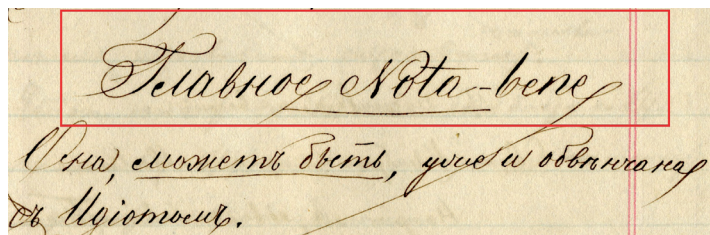 Главное Nota-bene
Она, может быть, уже и обвѣнчана
съ Идіотомъ.